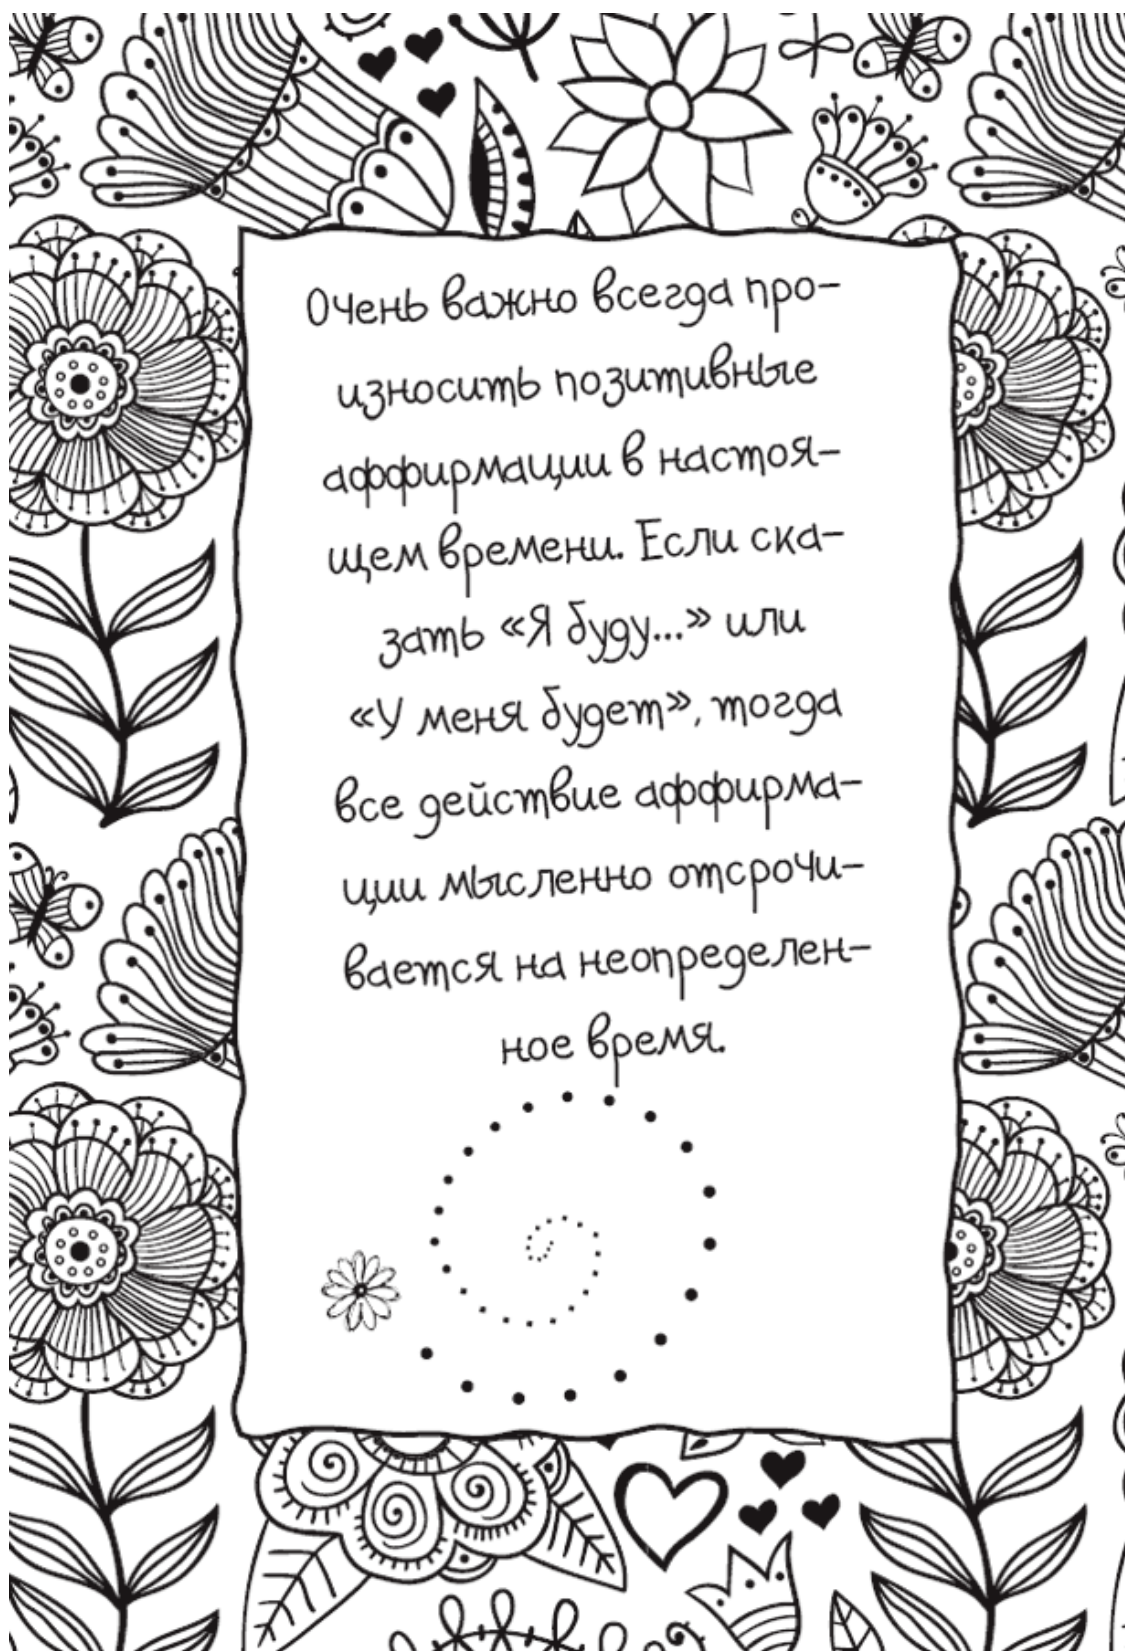 Очень важно всегда про-
износить позитивные
аффирмации в настоя-
щем времени. Если ска-
зать «Я буду...» или
«У меня будет», тогда
все действие аффирма-
ции мысленно отсрочи-
вается на неопределен-
ное время.